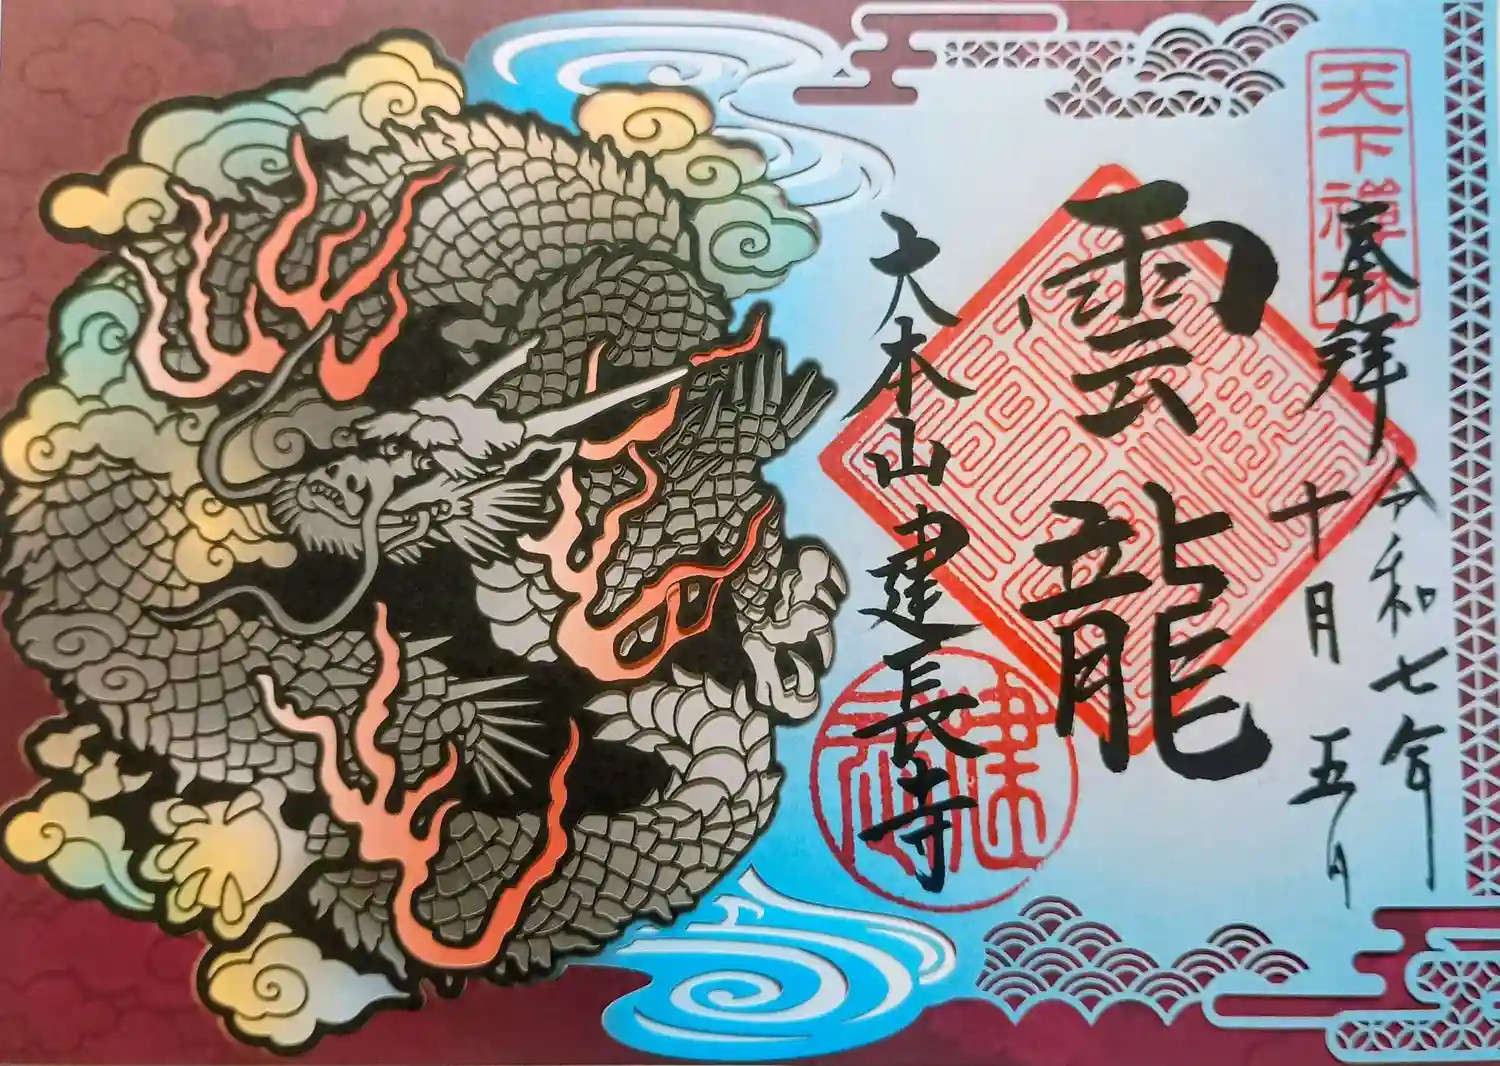 天下禪林
奉拝
令和七年
十月五日
雲龍
大本山建長寺